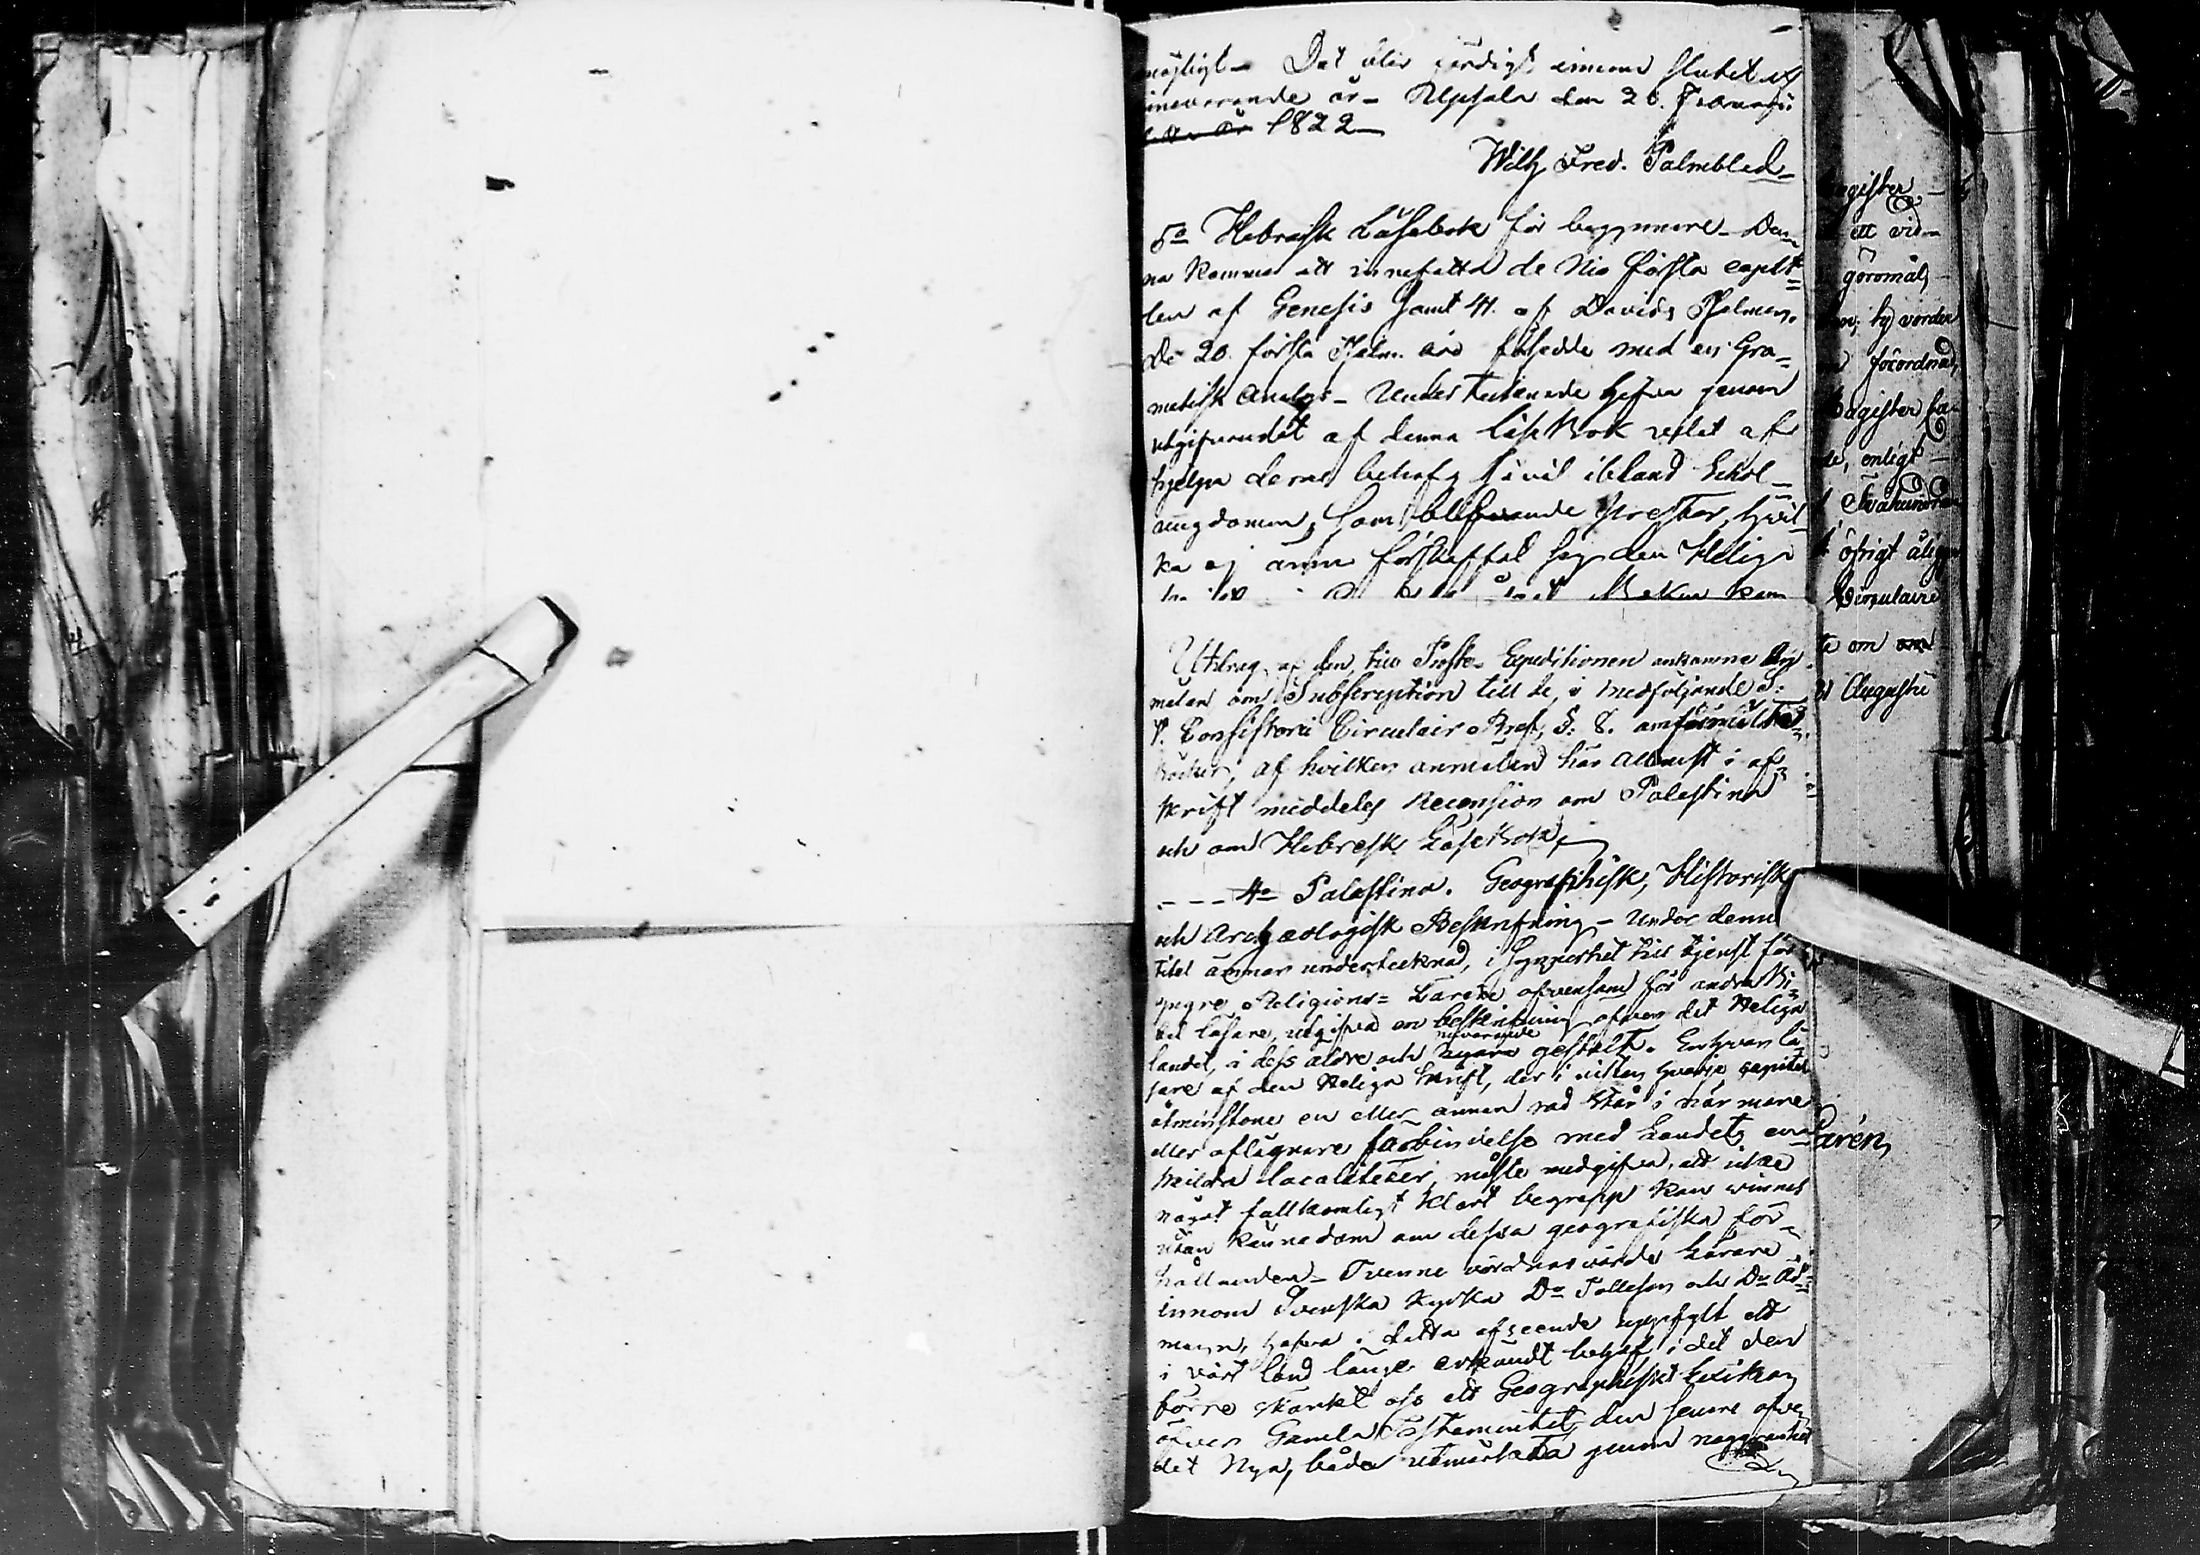 möjligt – Det blir färdigt innom slutet af
innevarande år – Upsala den 26. Februarii
1822 –
Wilh Fred. Palmblad –
5o Hebraisk Läsebok för begynnare – Den-
na kommer att innefatta de Nio första capit-
len af Genesis samt 41. af Davids Psalmer.
De 20. första Psalm. äro försedde med en Gra-
matisk Analys – Undertecknade hafva genom
utgifvandet af denna läseBok velat af-
hjelpa deras behof så väl ibland Skol-
ungdomen, som blifvande Prester, hvil-
ka ej ännu förskaffat sig den Helige
Utdrag af den till Posts-Expeditionen ankomne An-
mälan om Subscription till de, i medföljande S:
V. Consistorii Circulair Bref, §. 8. omförmälte
böcker, af hvilken anmälan här allenast i af-
skrift meddeles Recension om Palestina
och om Hebreisk LäseBok.
- - - 4o Palestina. Geografisk, Historisk
och Archæologisk Beskrifning – Under denna
titel ämnar undertecknad, i synnerhet till tjenst för
yngre Religions-Lärare äfvensom för andra Bi-
bel läsare, utgifva en beskrifning öfver det Heliga
nuvarande
landet, i dess äldre och nyare gestalt. Enhvar lä-
sare af den Heliga Skrift, der i nästan hvarje capitel
åtminstone en eller annan rad står i närmare
eller aflägsnare förbindelse med Landets en-
skilda localiteter, måste medgifva, att icke
något fullkomligt klart begrepp kan vinnas
utan kännedom om dessa geografiska för-
hållanden – Tvenne vördnadsvärda Lärare
innom Svenska Kyrkan Dr Tollesson och Dr Ödmann,
hafva i detta afseende uppfyllt ett
i vårt land länge erkändt behof i det den
förre skänkt oss ett Geographiskt Lexikon
öfver Gamla Testamentet, den senare öfver
det Nya, båda utmärkta genom noggranhet
Magister –
ett vid-
göromål,
ty varder
förordnad,
Magister
enligt –
Tvåhundra
öfrigt
Circulaire
om om
Augusti
larén,